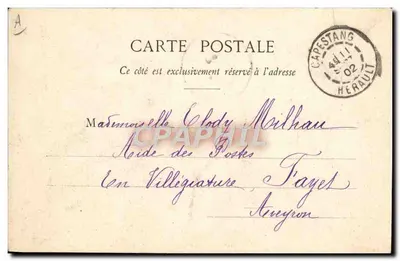 A
CARTE POSTALE
Ce côté est exclusivement réservé à l'adresse
CAPESTANG
11
02
HÉRAULT
Mademoiselle Clody Milhau
CPAPHIL
Aide des Postes
En Villégiature, Fayet
Aveyron